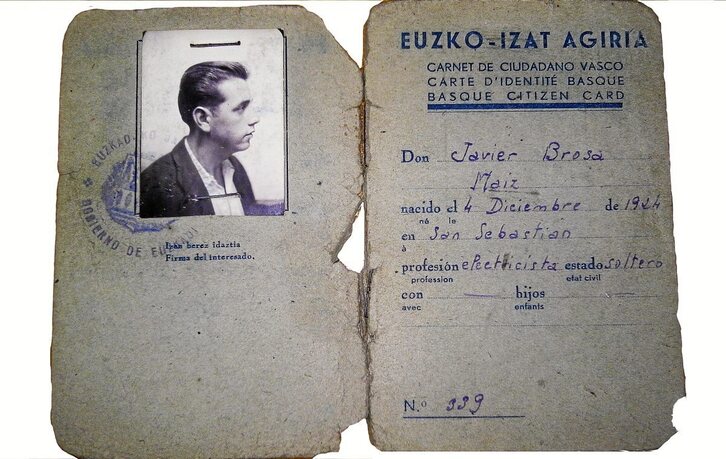 EUZKADI
GOBIERNO DE EUZKADI
Izan berez idaztia
Firma del interesado.
EUZKO-IZAT AGIRIA
CARNET DE CIUDADANO VASCO
CARTE D'IDENTITÉ BASQUE
BASQUE CITIZEN CARD
Don Javier Brosa
Maiz
nacido el 4 Diciembre de 1924
né le
en San Sebastián
à
profesión electricista estado soltero
profession etat civil
con — hijos —
avec enfants
N.o 339